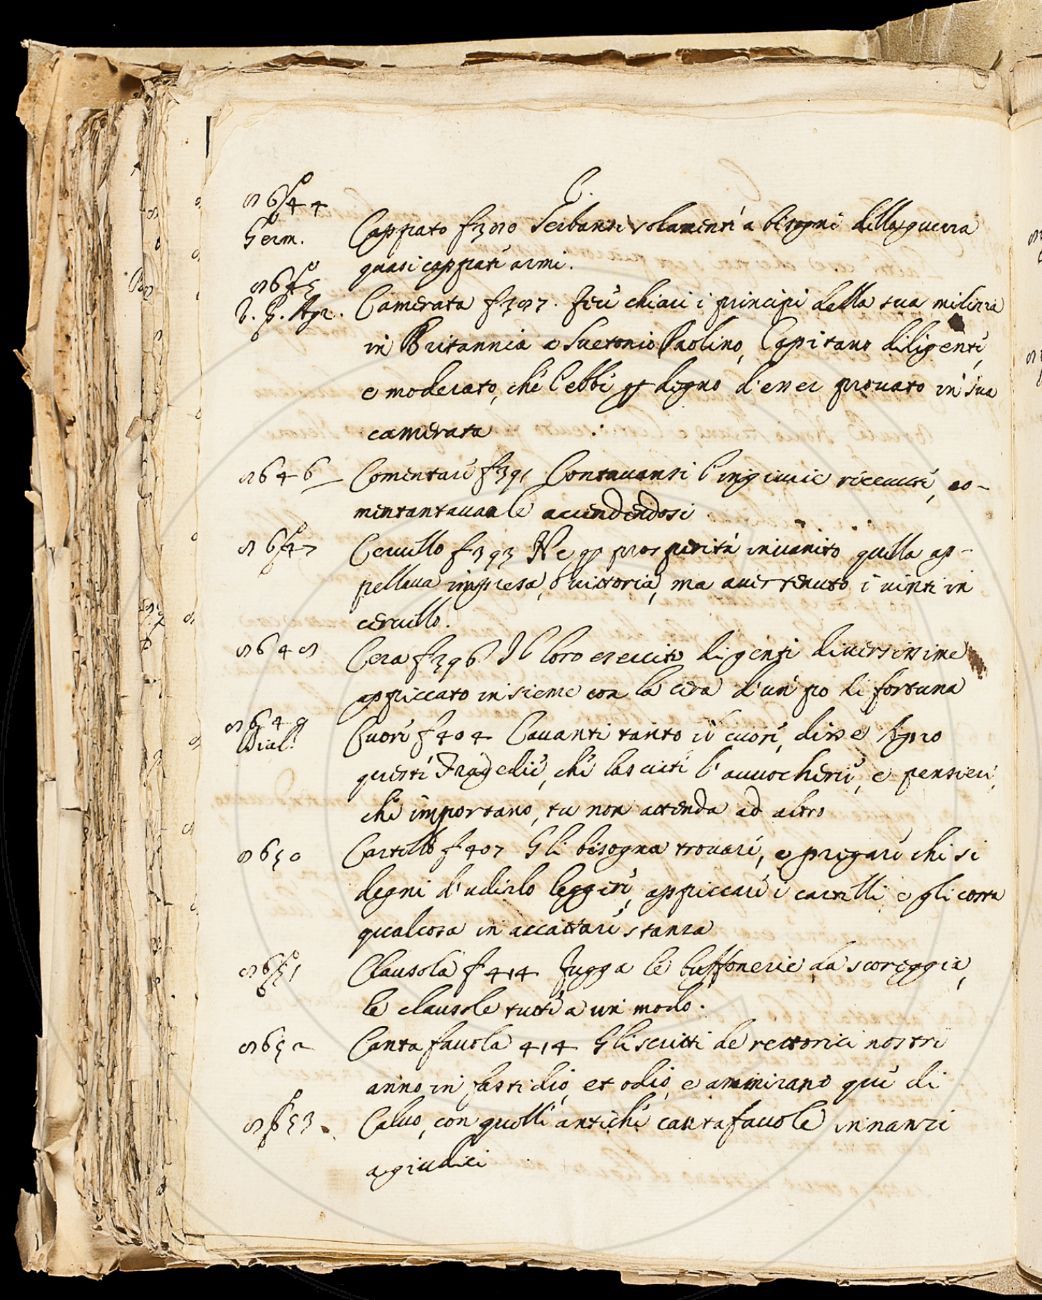 C.
8644
Germ. Cappato f 380 Serbansi solamenti a bisogni della guerra
quasi cappati armi.
8645
V. G. Agr. Camerata f 387. Feci chiari i principi della sua milizia
in Britannia a Suetonio Paolino, Capitano diligenti,
e moderato, chi l'ebbi degno d'esser provato in sua
camerata
8646 Comentari f 391 Contavansi l'ingiurie riceuuti, co-
mentantavanle accendendosi
8647 Ceruello f 393 Ne prosperità inuanito quella ap-
pellaua impresa, o uittoria, ma auer tenuto i uinti in
ceruello.
8648 Cera f 396 Il loro esercito di genti diuersissime
appiccato insieme con la cera d'un po di fortuna
8649
Dial. Cuori f 404 Cauanti tanto il cuori, disse Apro
questi Tragedii, chi lasciati l'auuocherii, e pensieri,
chi importano, tu non attenda ad altro
8650 Cartello f 407 Gli bisogna trouari, e pregari chi si
degni d'udirlo leggiri, appiccari i cartelli e gli costa
qualcosa in accattari stanza
8651 Clausola f 414 Fugga le buffonerie da scoreggia,
le clausole tutti a un modo.
8652 Cantafauola 414 Gli scritti de rettorici nostri
anno in fastidio, et odio, e ammirano que di
8653. Caluo, con quelli antichi cantafauole innanzi
a giudici